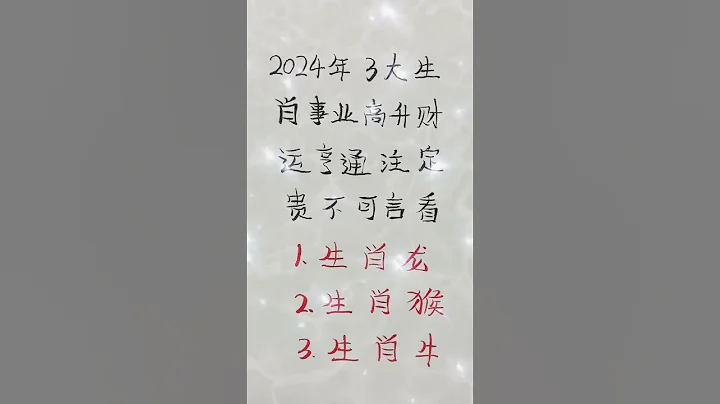 2024年3大生
肖事业高升财
运亨通注定
贵不可言看
1.生肖龙
2.生肖猴
3.生肖牛